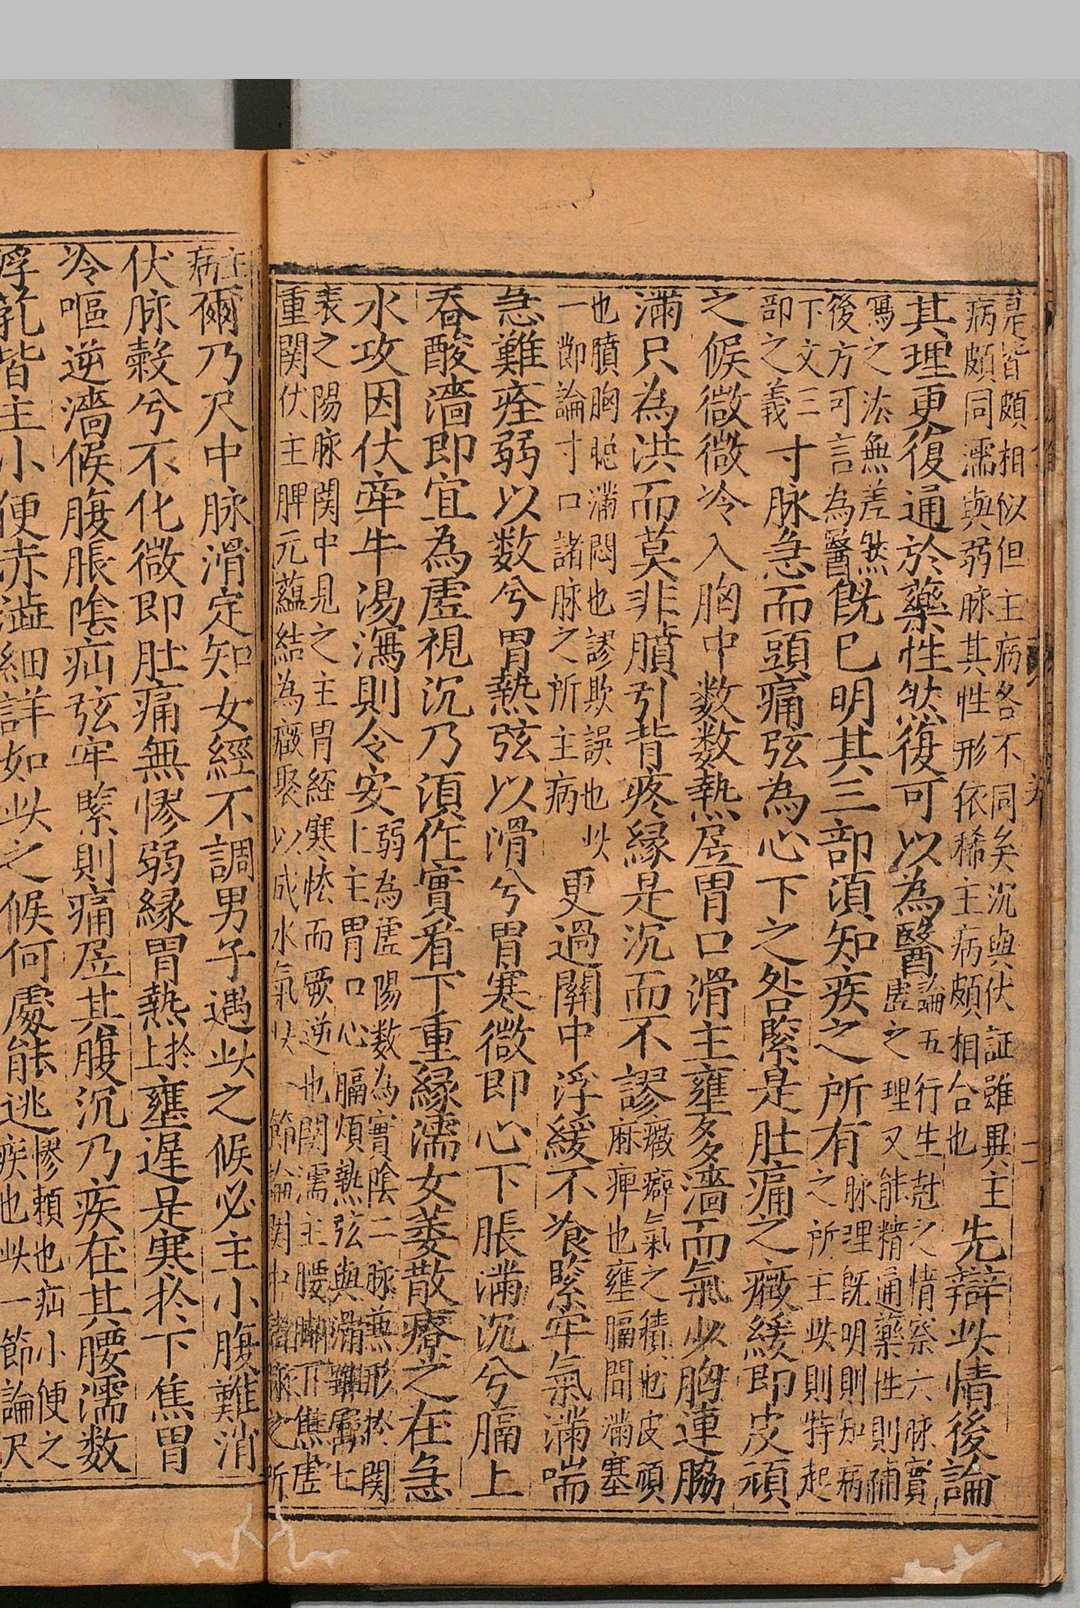 是皆頗相似但主病各不同矣沉與伏証雖異主
病頗同濡與弱脉其性形依稀主病頗相合也
先辯此情後論
其理更復通於藥性然復可以為醫
論五行生尅之情察六脉實
虛之理又能精通藥性則補
瀉之法無差然
後方可言為醫
既已明其三部須知疾之所有
脉理既明則知病
之所主此則特起
下文三
部之義
寸脉急而頭痛弦為心下之咎緊是肚痛之癥緩即皮頑
之候微微冷入胸中數數熱居胃口滑主壅多濇而氣少胸連脇
滿只為洪而莫非膹引背疼緣是沉而不謬
癥癖氣之積也皮頑
麻痺也壅膈間滿塞
也膹胸聪滿悶也謬欺誤也此
一節論寸口諸脉之所主病
更過關中浮緩不飡緊牢氣滿喘
急難痊弱以数兮胃熱弦以滑兮胃寒微即心下脹滿沉兮膈上
吞酸濇即宜為虛視沉乃須作實看下重緣濡女萎散療之在急
水攻因伏牽牛湯瀉則令安
弱為虛陽數為實陰二脉兼形於関
上主胃口心膈煩熱弦與滑雖屬七
表之陽脉関中見之主胃經寒恠而厥逆也関濡主腰脚下焦虛
重関伏主脾元蘊結為癥聚以成水氣此一節論関中諸脉之所
主
病
爾乃尺中脉滑定知女經不調男子遇此之候必主小腹難消
伏脉穀兮不化微即肚痛無慘弱緣胃熱上於壅遲是寒於下焦胃
冷嘔逆濇候腹脹陰疝弦牢緊則痛居其腹沉乃疾在其腰濡数
浮芤皆主小便赤澁細詳如此之候何處能逃
慘頼也疝小便之
疾也此一節論尺